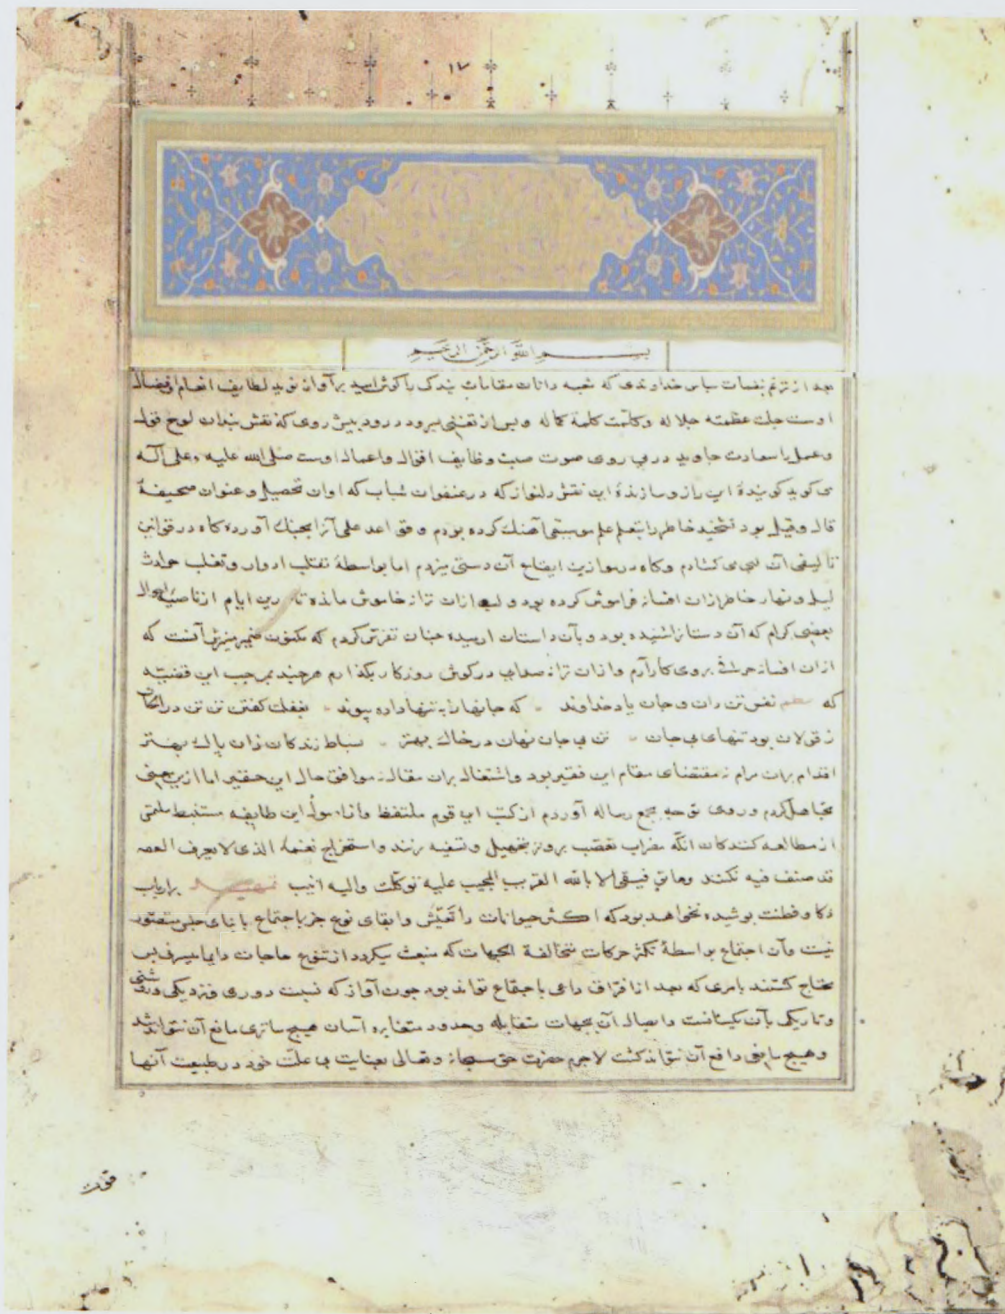 ١٧
بسم الله الرحمن الرحیم
بعد از ترنم بنغمات سپاس خداوندی که شعبه دانان مقامات بندگی باکوش امید بر آواز نوید لطایف انعام و افضال
اوست جلت عظمته جلاله وکلمت کلمة کماله وپس از تغنی بسرود درود پیش روی که نقش بندان لوح قول
وعمل را سعادت جاوید در پی روی صوت صیت وظایف اقوال واعمال اوست صلی الله علیه وعلی آله
می کوید کویندهٔ این راز وسازندهٔ این نقش دلنواز که در عنفوان شباب که اوان تحصیل وعنوان صحیفهٔ
قال وقیل بود تشحیذ خاطر را بتعلم علم موسیقی آهنک کرده بودم وقواعد علمی آنرا بچنک آورده کاه در قوانین
تألیفی آن لبی می کشادم وکاه در موازین ایقاع آن دستی میزدم اما بواسطهٔ تقلب ادوار وتغلب حوادث
لیل ونهار خاطر ازان افسانه فراموش کرده بود ولب ازان ترانه خاموش مانده تا درین ایام از ناصیهٔ احوال
بعضی کرام که آن دستان شنیده بود وبآن داستان ارمیده چنان تفرس کردم که مکنون ضمیر منیرش آنست که
ازان افسانه حرفی بروی کار آرم وازان ترانه صدایی در کوش روزکار بکذارم هرچند بموجب این قضیه
که نظم نفس تن دان وجان یاد خداوند که جانها را بتنها داده پیوند بغفلت کفتن تن تن در الحان
زقی لان بود تنهای بی جان تن بی جان نهان در خاک بهتر بساط زندکان زان پاک بهتر
اقدام بران مرام نه مقتضای مقام این فقیر بود واشتغال بران مقال نه موافق حال این حقیر اما ازین معنی
تجاهل کردم وروی توجه بجمع رساله آوردم از کتب این قوم ملتقط وازاصول این طایفه مستنبط ملتمس
از مطالعه کنندکان آنکه مضراب تعصب بر وتر تجهیل وتسفیه نزنند واستخراج نغمهٔ الذی لا یعرف العصر
قد صنف فیه نکنند وماتوفیقی الا بالله القریب المجیب علیه توکلت والیه انیب تمهید بر ارباب
ذکا وفطنت پوشیده نخواهد بود که اکثر حیوانات را تعیش وابقای نوع جز باجتماع با بنای جنس متصور
نیست وآن اجتماع بواسطهٔ تکثر حرکات متخالفة الجهات که منبعث میکردد از تنوع حاجات دایما میسر نی پس
محتاج کشتند بامری که بعد از افتراق داعی باجتماع تواند بود چون آواز که نسبت دوری ونزدیکی وروشنی
وتاریکی بآن یکسانست وایصال آن بجهات متقابله وحدود متغایره آسان هیچ ساتری مانع آن نتواند شد
وهیچ مانعی دافع آن نتواند کشت لاجرم حضرت حق سبحانه وتعالی بعنایت بی علت خود در طبیعت آنها
قوت